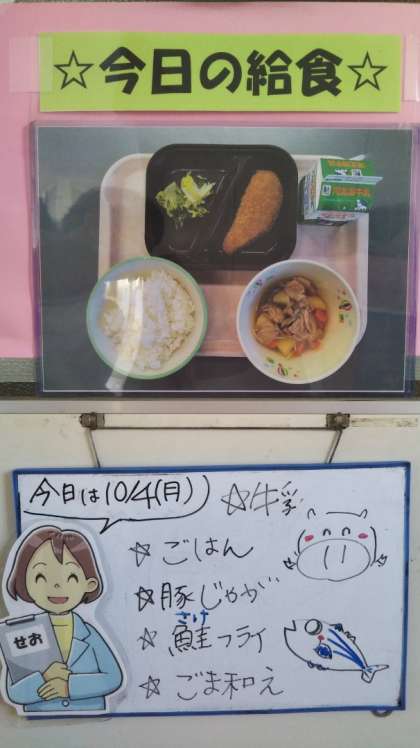 ☆今日の給食☆
今日は10/4(月)
☆牛乳
☆ごはん
☆豚じゃが
さけ
☆鮭フライ
☆ごま和え
せお